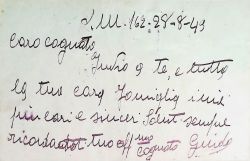 P.M. 162-28-8-43
caro cognato
Invio a te, e tutto
la tua cara famiglia i miei
più cari e sinceri saluti sempre
ricordandoti tuo aff mo
cognato Guido